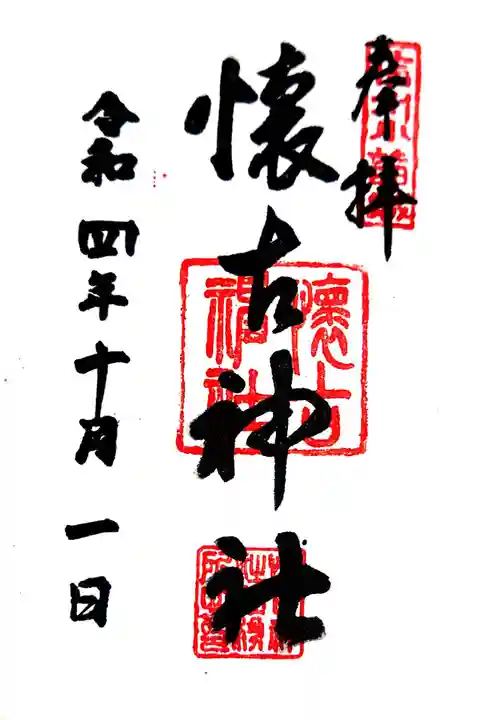 奉拝
懐古神社
懐古
神社
令和四年十月一日